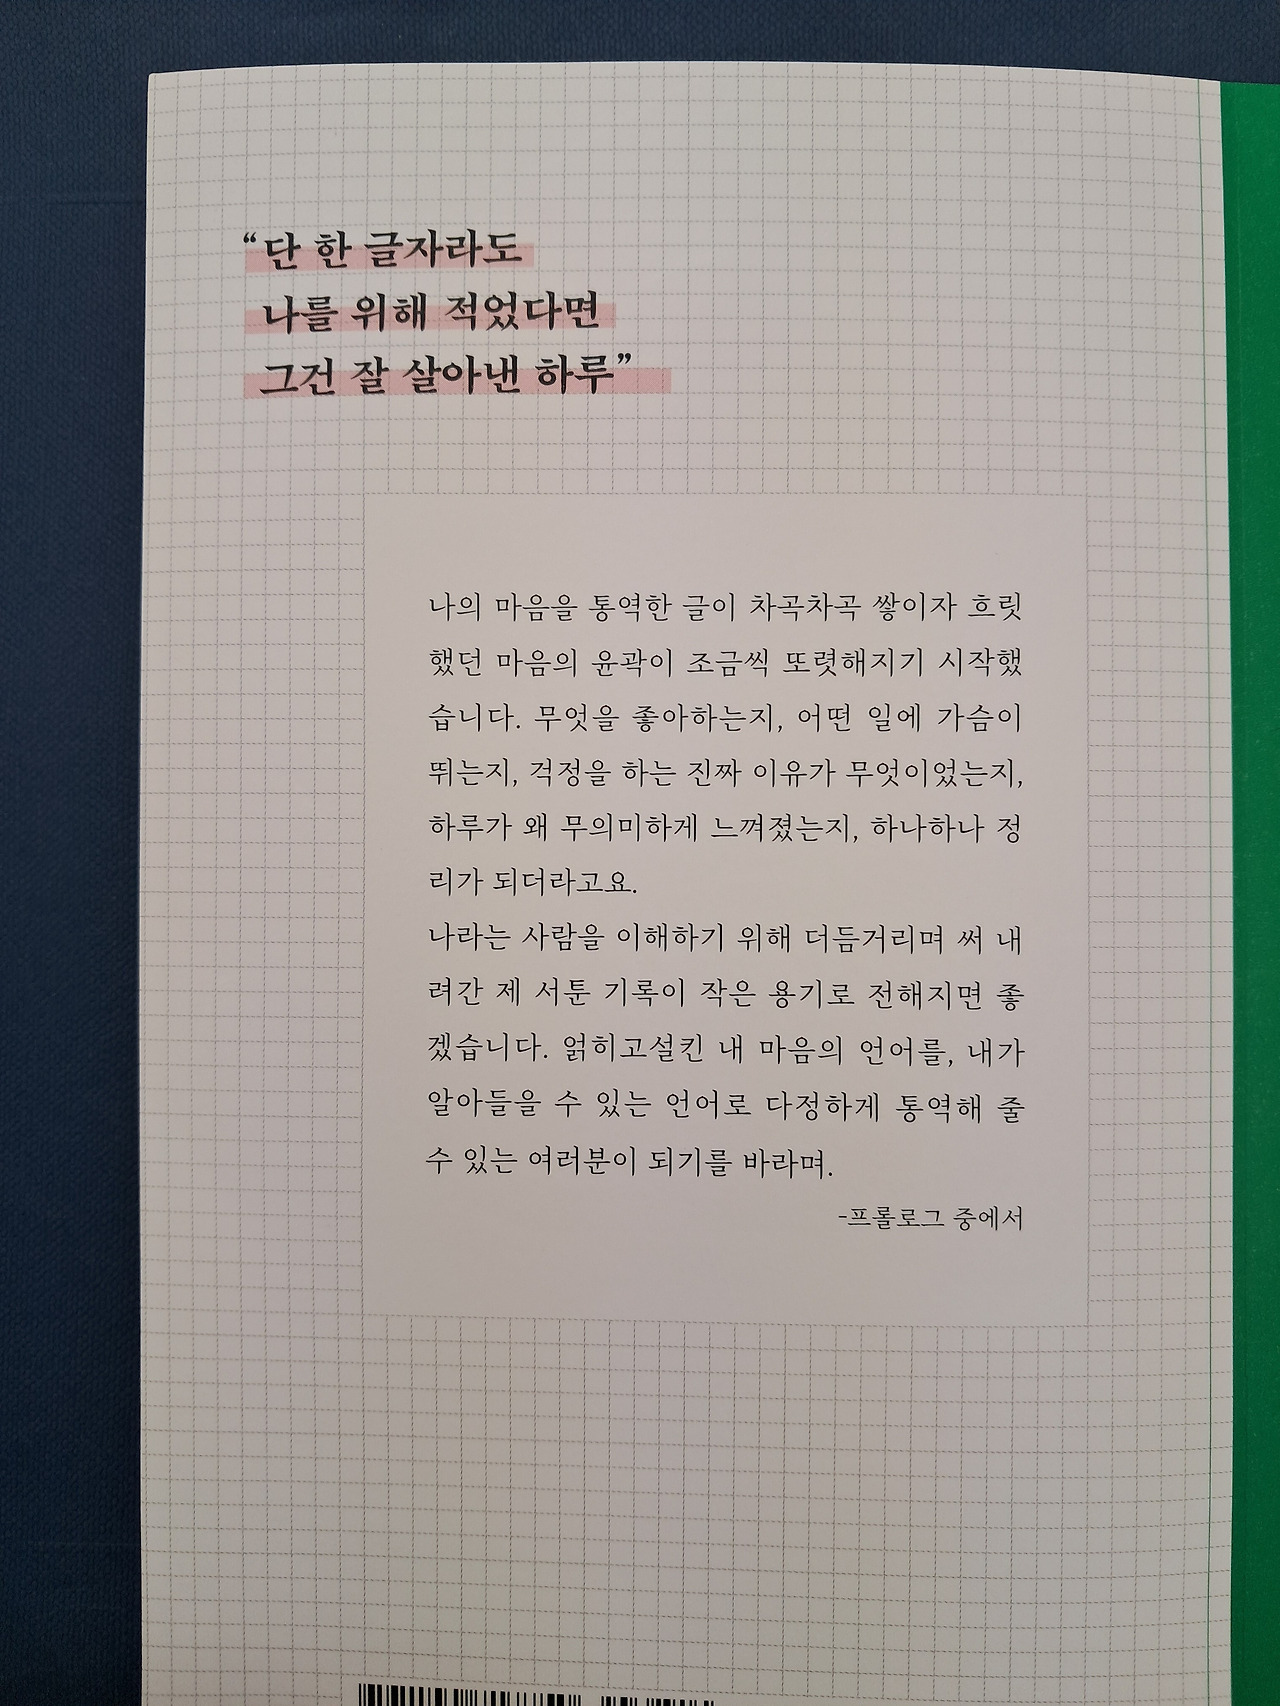 “단 한 글자라도
나를 위해 적었다면
그건 잘 살아낸 하루”
나의 마음을 통역한 글이 차곡차곡 쌓이자 흐릿
했던 마음의 윤곽이 조금씩 또렷해지기 시작했
습니다. 무엇을 좋아하는지, 어떤 일에 가슴이
뛰는지, 걱정을 하는 진짜 이유가 무엇이었는지,
하루가 왜 무의미하게 느껴졌는지, 하나하나 정
리가 되더라고요.
나라는 사람을 이해하기 위해 더듬거리며 써 내
려간 제 서툰 기록이 작은 용기로 전해지면 좋
겠습니다. 얽히고설킨 내 마음의 언어를, 내가
알아들을 수 있는 언어로 다정하게 통역해 줄
수 있는 여러분이 되기를 바라며.
-프롤로그 중에서